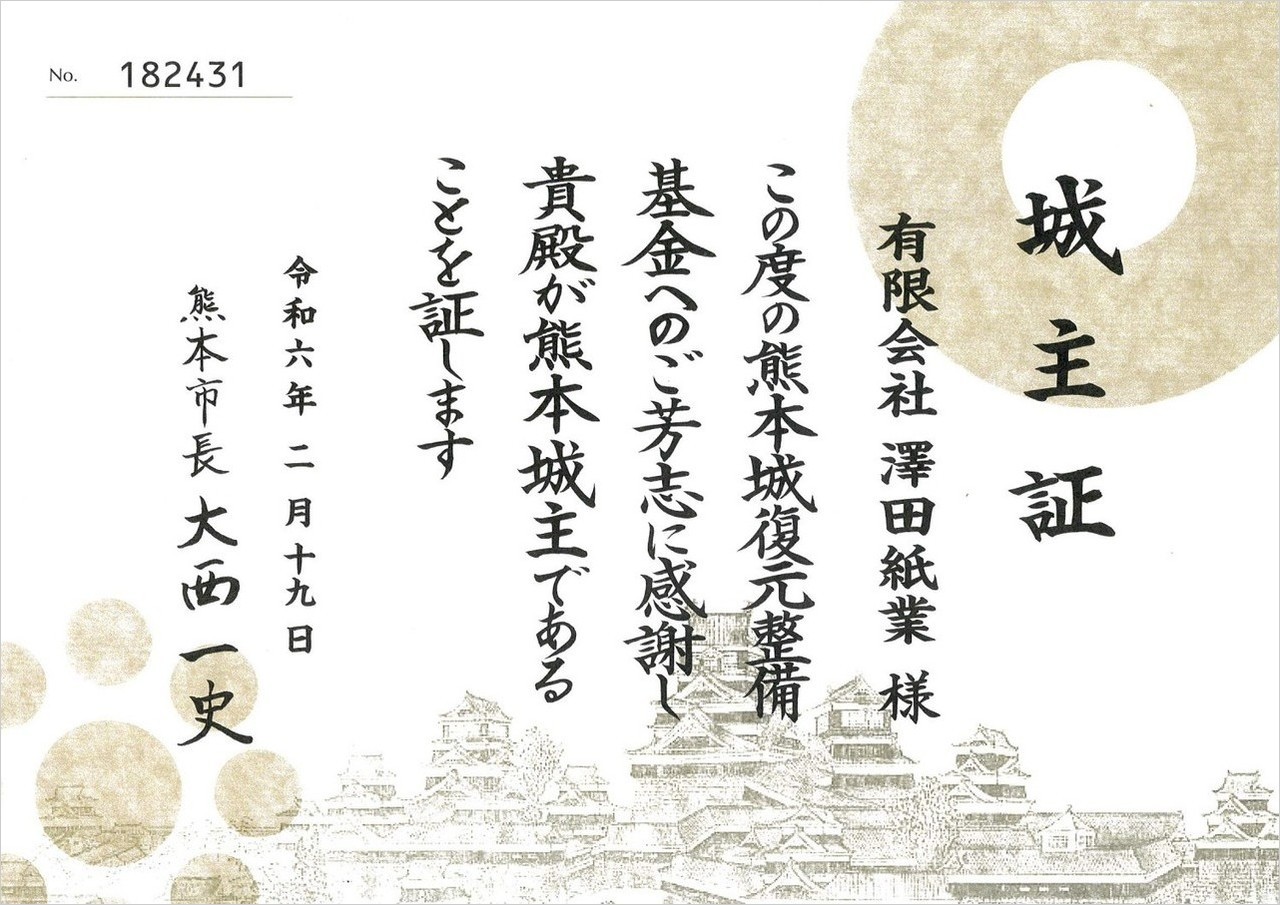 No. 182431
城主証
有限会社 澤田紙業 様
この度の熊本城復元整備
基金へのご芳志に感謝し
貴殿が熊本城主である
ことを証します
令和六年二月十九日
熊本市長 大西一史